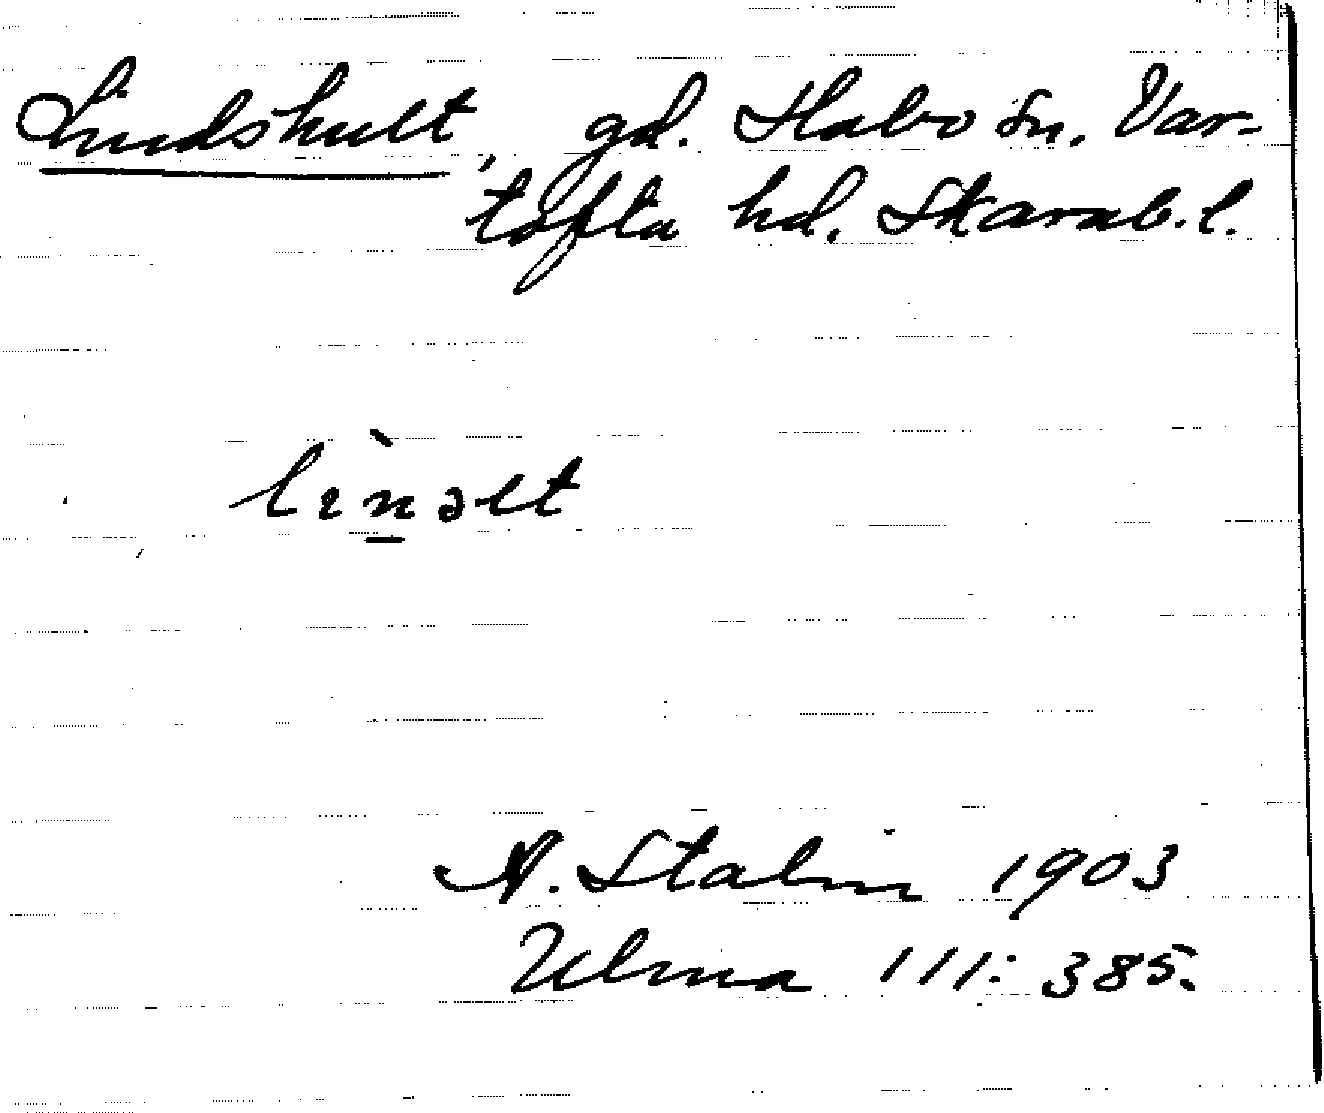 Lindshult, gd. Habo sn, Var-
tofta hd. Skarab. l.
lìn̠əlt
A. Stalin 1903
Ulma 111:385.